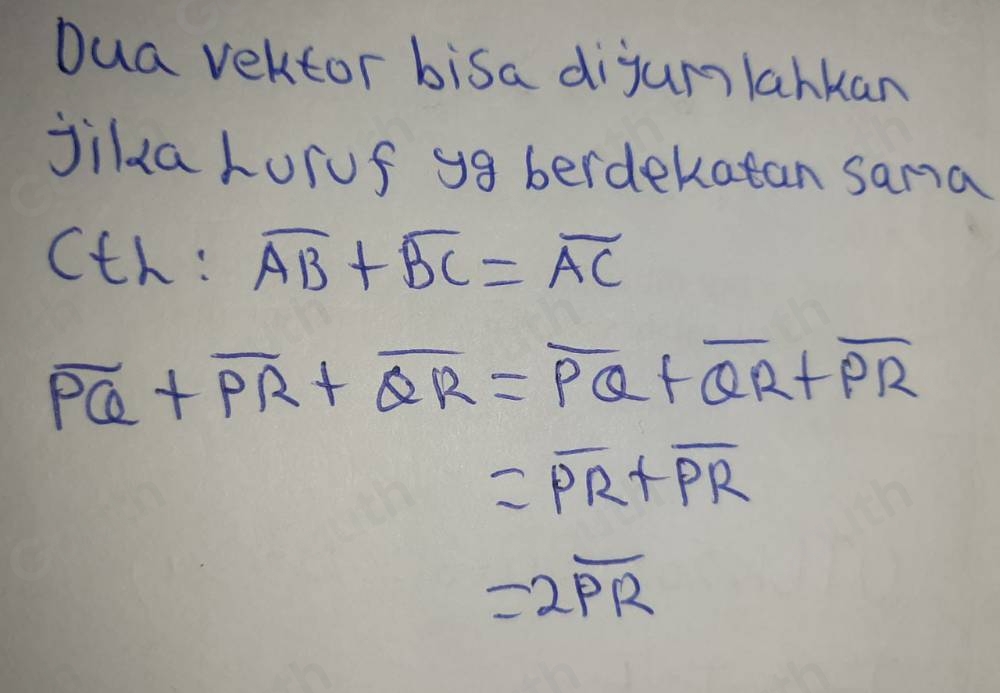 Dua vektor bisa dijumlahkan
jika huruf yg berdekatan sama
Cth: \overline{AB} + \overline{BC} = \overline{AC}
\overline{PQ} + \overline{PR} + \overline{QR} = \overline{PQ} + \overline{QR} + \overline{PR}
= \overline{PR} + \overline{PR}
= 2\overline{PR}